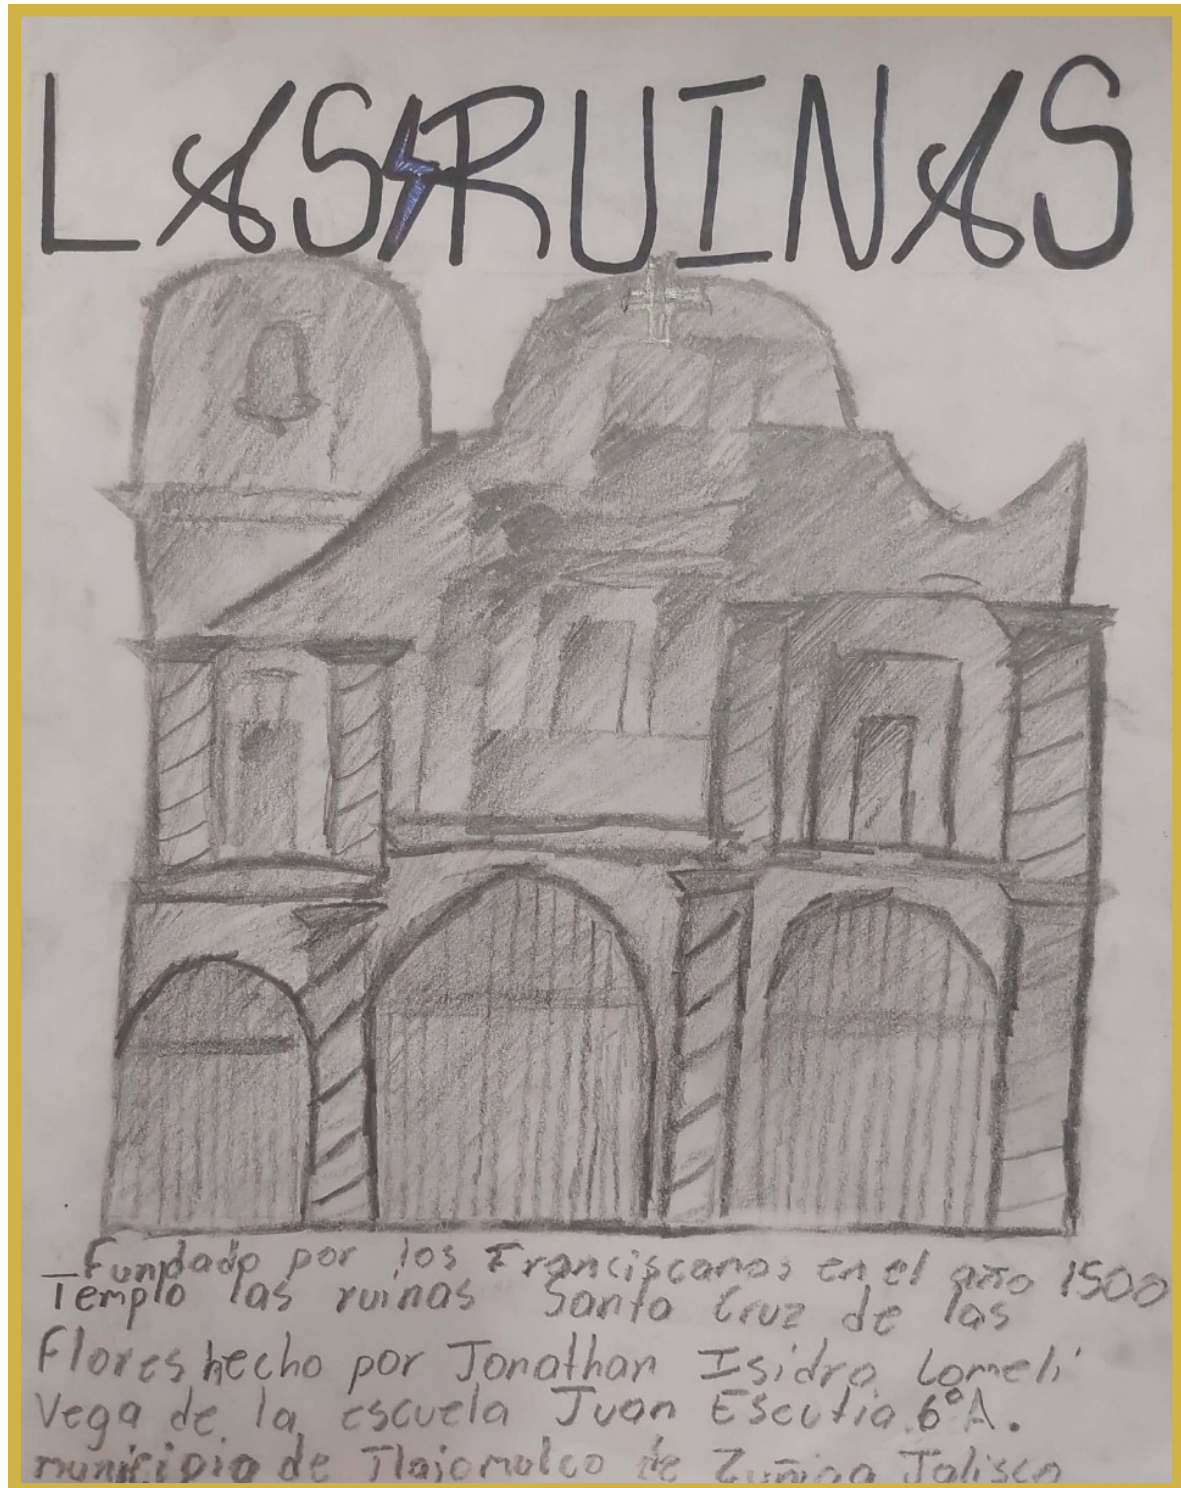 LAS RUINAS
Fundado por los Franciscanos en el año 1500
Templo las ruinas Santa Cruz de las
Flores hecho por Jonathan Isidro Lomelí
Vega de la escuela Juan Escutia 6°A.
municipio de Tlajomulco de Zuñiga Jalisco